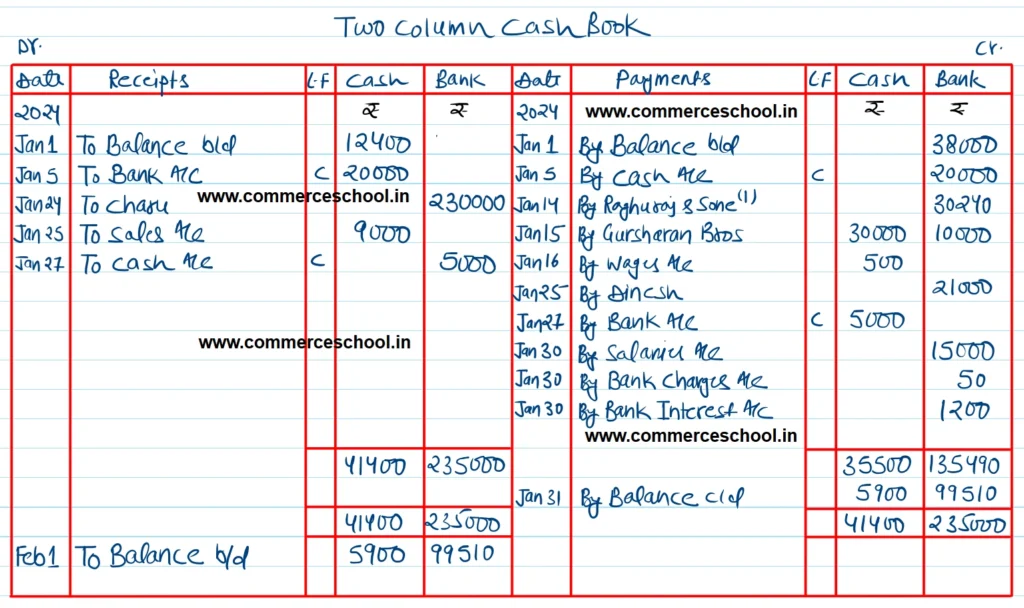 Two Column Cash Book
Dr. Cr.
Date Receipts L.F Cash Bank Date Payments L.F Cash Bank
2024 ₹ ₹ 2024 www.commerceschool.in ₹ ₹
Jan 1 To Balance b/d 12400 Jan 1 By Balance b/d 38000
Jan 5 To Bank A/C C 20000 Jan 5 By Cash A/c C 20000
www.commerceschool.in
Jan 24 To Charu 230000 Jan 14 By Raghuraj & Sone (1) 30240
Jan 25 To Sales A/c 9000 Jan 15 By Gursharan Bros 30000 10000
Jan 27 To Cash A/c C 5000 Jan 16 By Wages A/c 500
Jan 25 By Dinesh 21000
Jan 27 By Bank A/c C 5000
www.commerceschool.in
Jan 30 By Salaries A/c 15000
Jan 30 By Bank Charges A/c 50
Jan 30 By Bank Interest A/C 1200
www.commerceschool.in
41400 235000 35500 135490
Jan 31 By Balance c/d 5900 99510
41400 235000 41400 235000
Feb 1 To Balance b/d 5900 99510